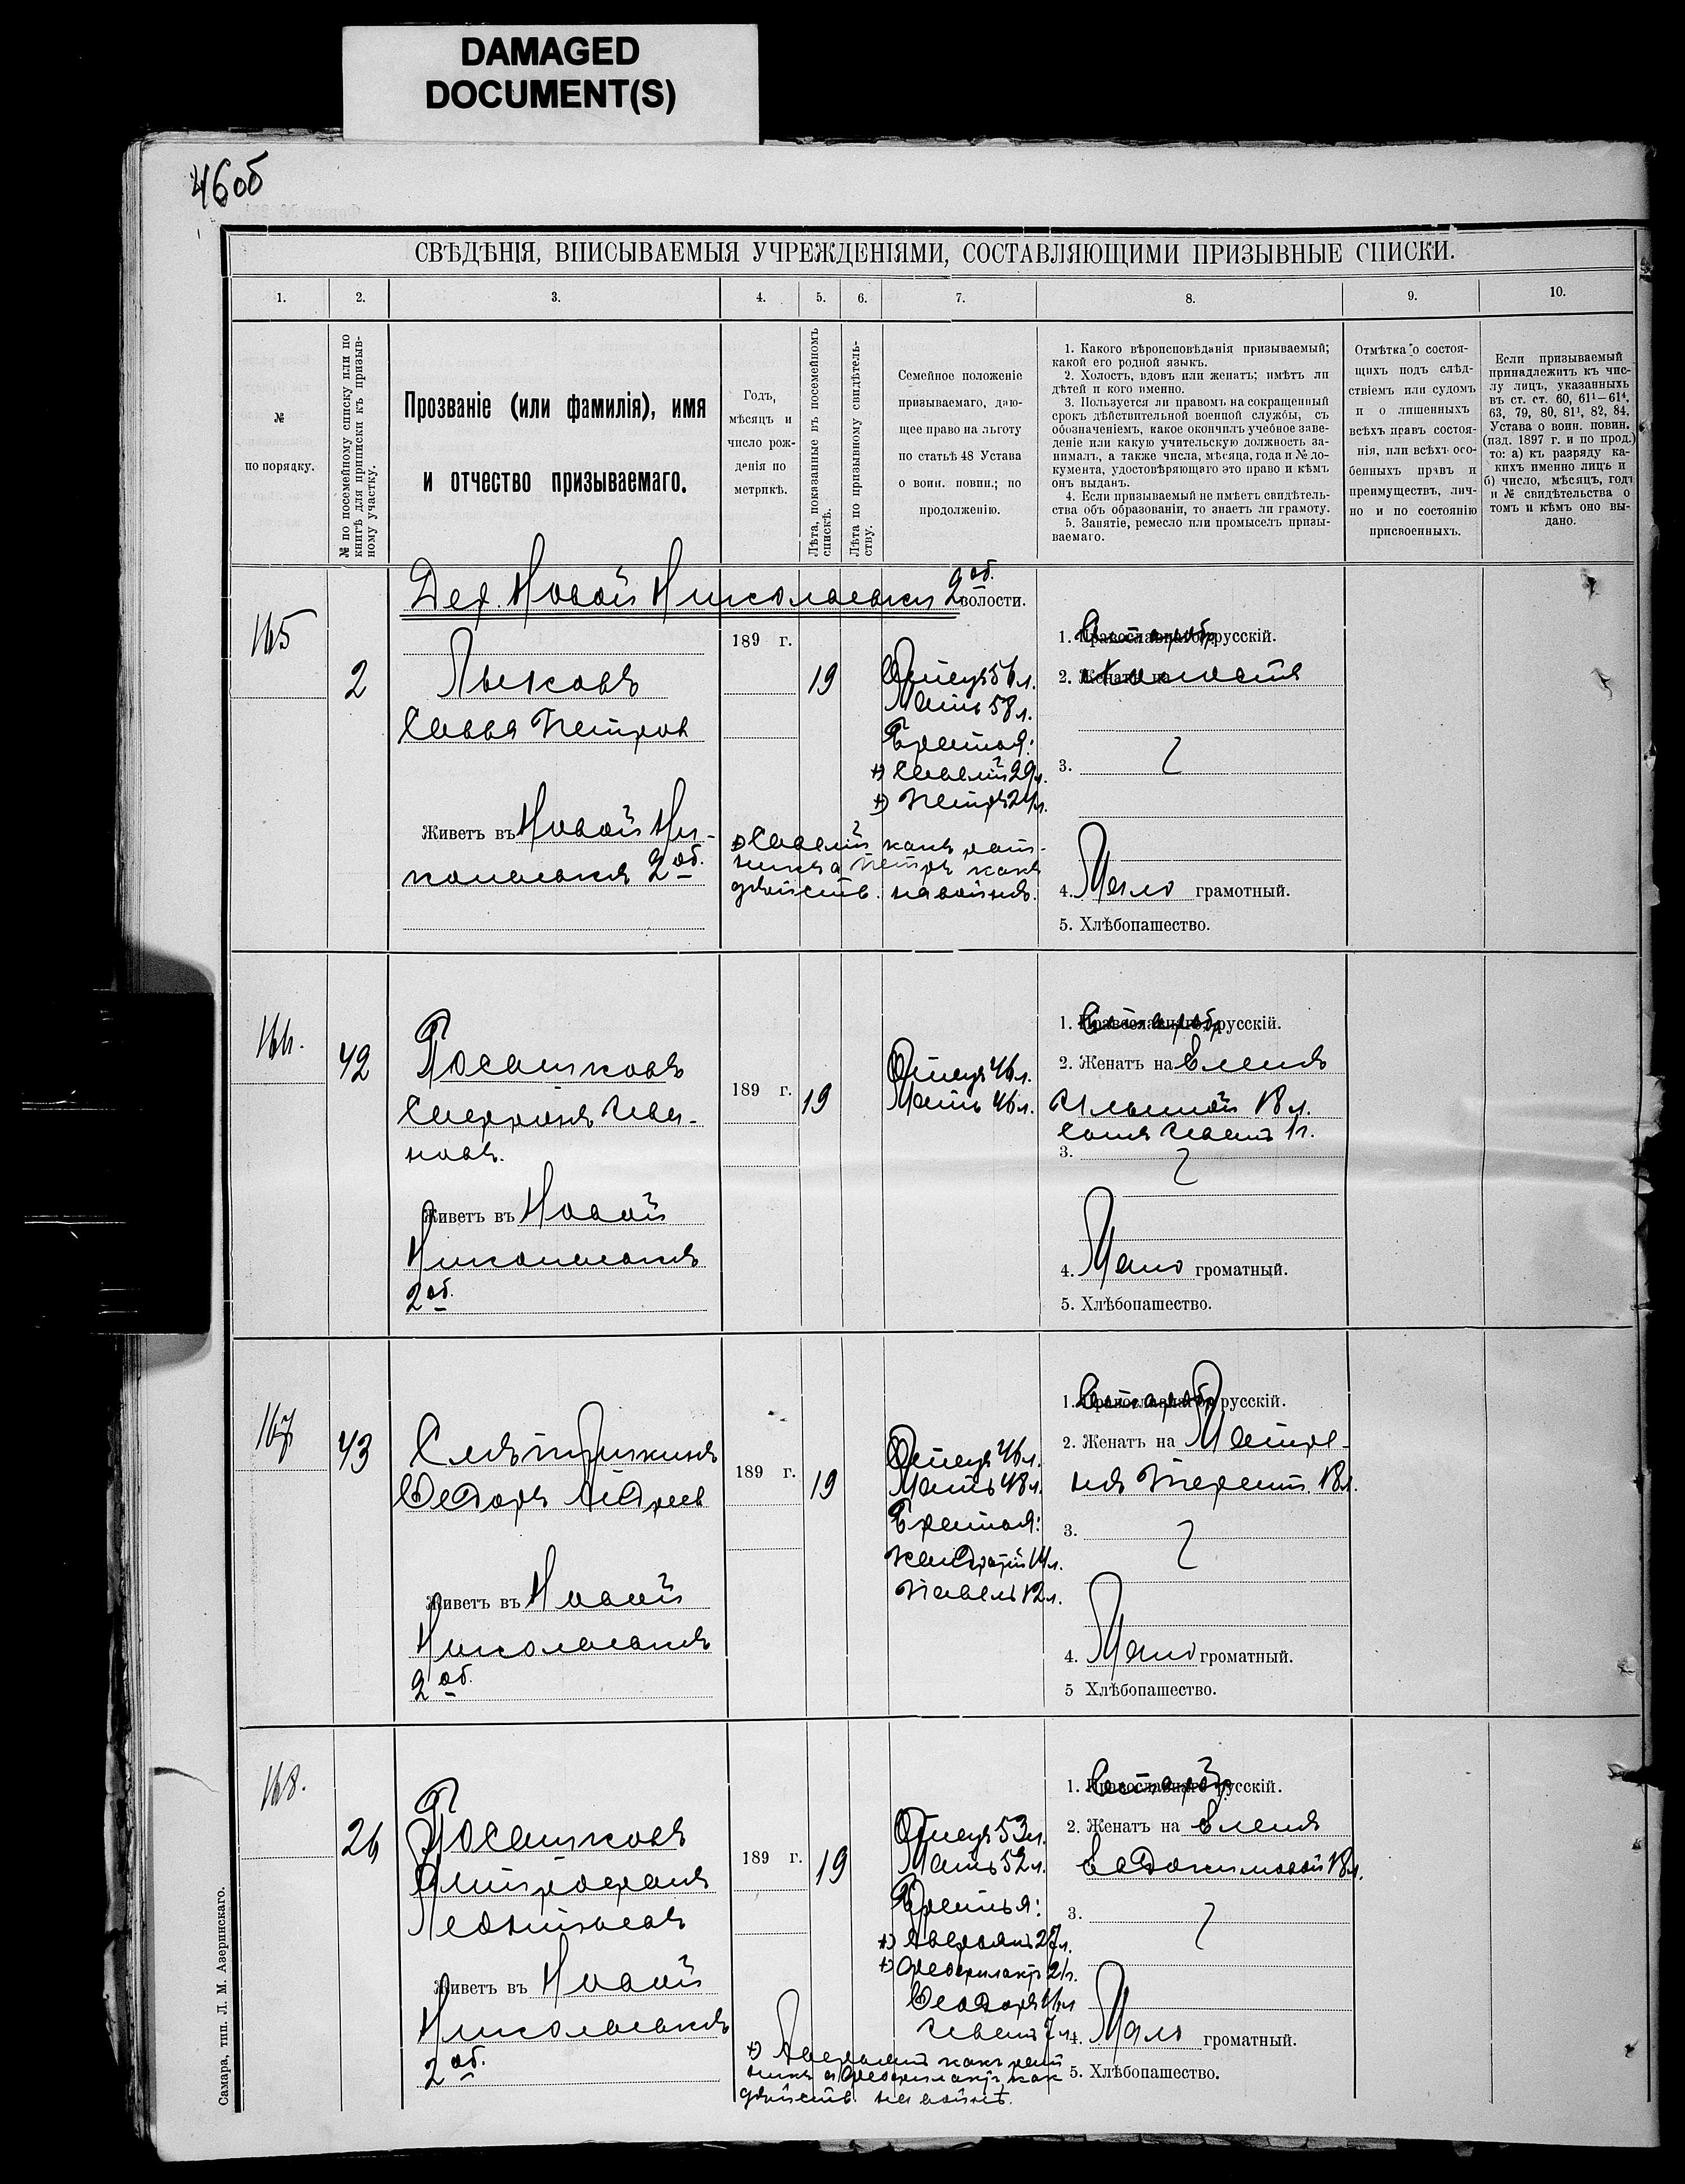 DAMAGED
DOCUMENT(S)
46об
СВѢДѢНІЯ, ВПИСЫВАЕМЫЯ УЧРЕЖДЕНІЯМИ, СОСТАВЛЯЮЩИМИ ПРИЗЫВНЫЕ СПИСКИ.
1. 2. 3. 4. 5. 6. 7. 8. 9. 10.
№
по порядку.
№ по посемейному списку или по
книгѣ для приписки къ призыв-
ному участку.
Прозваніе (или фамилія), имя
и отчество призываемаго.
Годъ,
мѣсяцъ и
число рож-
денія по
метрикѣ.
Лѣта, показанные въ посемейномъ
спискѣ.
Лѣта по призывному свидѣтель-
ству.
Семейное положеніе
призываемаго, даю-
щее право на льготу
по статьѣ 48 Устава
о воин. повин.; по
продолженію.
1. Какого вѣроисповѣданія призываемый;
какой его родной языкъ.
2. Холостъ, вдовъ или женатъ; имѣтъ ли
дѣтей и кого именно.
3. Пользуется ли правомъ на сокращенный
срокъ дѣйствительной военной службы, съ
обозначеніемъ, какое окончилъ учебное заве-
деніе или какую учительскую должность за-
нималъ, а также числа, мѣсяца, года и № до-
кумента, удостовѣряющаго это право и кѣмъ
онъ выданъ.
4. Если призываемый не имѣетъ свидѣтель-
ства объ образованіи, то знаетъ ли грамоту.
5. Занятіе, ремесло или промыселъ призы-
ваемаго.
Отмѣтка о состоя-
щихъ подъ слѣд-
ствіемъ или судомъ
и о лишенныхъ
всѣхъ правъ состоя-
нія, или всѣхъ осо-
бенныхъ правъ и
преимуществъ, лич-
но и по состоянію
присвоенныхъ.
Если призываемый
принадлежитъ къ чис-
лу лицъ, указанныхъ
въ ст. ст. 60, 61¹—61⁴,
63, 79, 80, 81¹, 82, 84,
Устава о воин. повин.
(изд. 1897 г. и по прод.)
то: а) къ разряду ка-
кихъ именно лицъ и
б) число, мѣсяцъ, годъ
и № свидѣтельства о
томъ и кѣмъ оно вы-
дано.
Дер. Новой Николаевки 2 об. волости.
165
2
Лысковъ
Савва Петров
Живетъ въ Новой Ни-
колаевкѣ 2 об.
189 г.
19
Отецъ 56 л.
Мать 58 л.
Братья:
+) Савелій 29 л.
+) Петръ 24 л.
+) Савелій какъ рат-
никъ а Петръ какъ
дѣйств. на войнѣ.
1. Православнаго русскій.
2. Женатъ на Холостъ
3.
4. Мало грамотный.
5. Хлѣбопашество.
166.
42
Посашковъ
Сафронъ Ива-
новъ.
Живетъ въ Новой
Николаевкѣ
2 об.
189 г.
19
Отецъ 46 л.
Мать 46 л.
1. Православнаго русскій.
2. Женатъ на Еленѣ
Ильиной 18 л.
сынъ Иванъ 1 г.
3.
4. Мало громатный.
5. Хлѣбопашество.
167
43
Федоръ Андреев
Живетъ въ Новой
Николаевкѣ
2 об.
189 г.
19
Отецъ 46 л.
Мать 48 л.
Братья:
Кандратій 14 л.
Павелъ 12 л.
1. Православнаго русскій.
2. Женатъ на Матре-
нѣ Терент. 18 л.
3.
4. Мало громатный.
5 Хлѣбопашество.
168.
26
Посашковъ
Митрофанъ
Леонтьевъ
Живетъ въ Новой
Николаевкѣ
2 об.
189 г.
19
Отецъ 53 л.
Мать 52 л.
Братья:
+) Аверьянъ 27 л.
+) Феофилактъ 21 г.
Федоръ
Иванъ 7 л.
+) Аверьянъ какъ рат
никъ а Феофилактъ как
дѣйств. на войнѣ.
1. Православнаго русскій.
2. Женатъ на Еленѣ
Евдокимовой 18 л.
3.
4. Мало громатный.
5. Хлѣбопашество.
Самара, тип. Л. М. Азеринскаго.